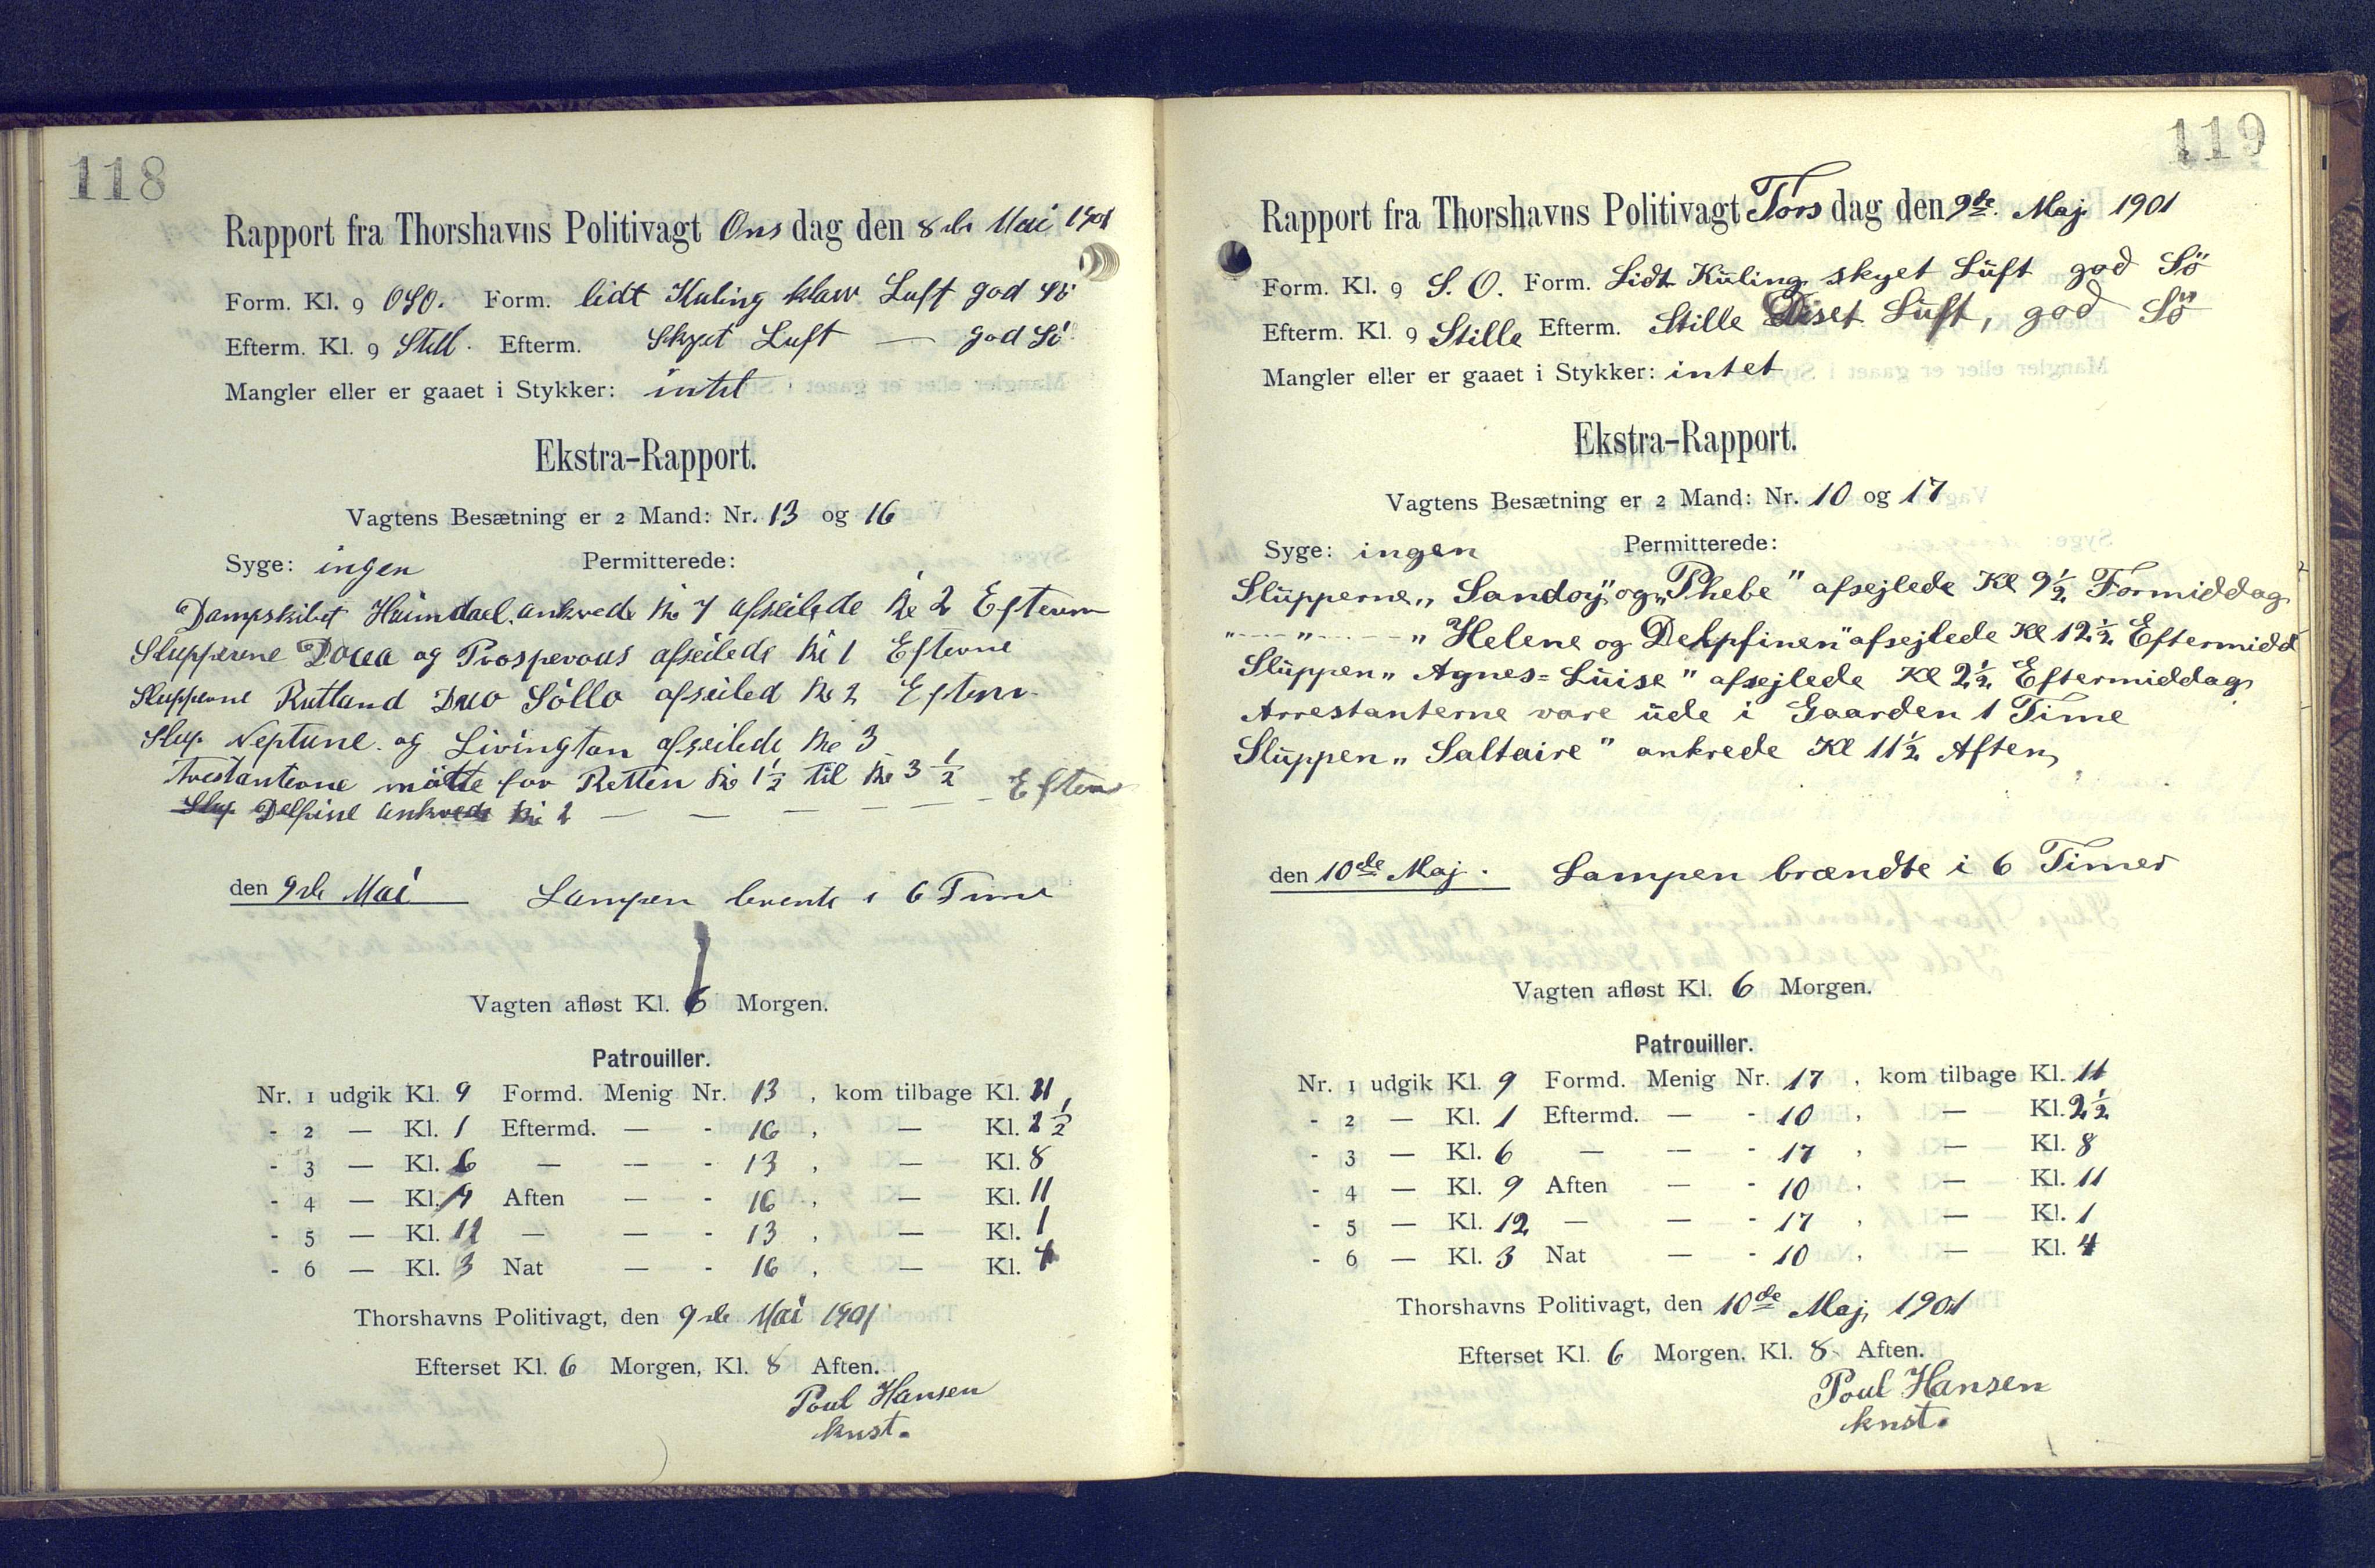 118
Rapport fra Thorshavns Politivagt Ons dag den 8de Mai 1901
Form. Kl. 9 OSO. Form. lidt Kuling klar Luft god Sö
Efterm. Kl. 9 Still. Efterm. Skyet Luft — god Sö
Mangler eller er gaaet i Stykker: intet
Ekstra-Rapport.
Vagtens Besætning er 2 Mand: Nr. 13 og 16
Syge: ingen Permitterede:
Dampskibet Heimdael. ankrede Kl 7 afseilede Kl 2 Efterm
Slupperne og Prosperous afseilede Kl 1 Efterm
Slupperne Rutland Duo Söllo afseiled Kl 2 Efterm
Slup Neptune. og Livington afseilede Kl 3
Arestanterne mötte for Retten Kl 1½ til Kl 3½ Efterm
Slup Delfine ankrede Kl 2 — — — — — —
den 9de Mai Lampen brente i 6 Time
Vagten afløst Kl. 6 Morgen.
Patrouiller.
Nr. 1 udgik Kl. 9 Formd. Menig Nr. 13, kom tilbage Kl. 11
- 2 — Kl. 1 Eftermd. — - 16, — Kl. 2½
- 3 — Kl. 6 — — - 13, — Kl. 8
- 4 — Kl. 9 Aften — - 16, — Kl. 11
- 5 — Kl. 12 — — - 13, — Kl. 1
- 6 — Kl. 3 Nat — - 16, — Kl. 4
Thorshavns Politivagt, den 9de Mai 1901
Efterset Kl. 6 Morgen, Kl. 8 Aften.
Poul Hansen
knst.
119
Rapport fra Thorshavns Politivagt Tors dag den 9de. Maj. 1901
Form. Kl. 9 S. O. Form. Lidt Kŭling skyet Lŭft god Sö
Efterm. Kl. 9 Stille Efterm. Stille Diset Lŭft, god Sö
Mangler eller er gaaet i Stykker: intet
Ekstra-Rapport.
Vagtens Besætning er 2 Mand: Nr. 10 og 17
Syge: ingen Permitterede:
Slŭpperne „Sandoy" og „Phebe" afsejlede Kl 9½ Formiddag
" — " — " Helene og Delpfinen" afsejlede Kl 12½ Eftermidd
Slŭppen „Agnes=Lŭise" afsejlede Kl 2½ Eftermiddag
Arrestanterne vare ŭde i Gaarden 1 Time
Slŭppen „Saltaire" ankrede Kl 11½ Aften
den 10de Maj. Lampen brændte i 6 Timer
Vagten afløst Kl. 6 Morgen.
Patrouiller.
Nr. 1 udgik Kl. 9 Formd. Menig Nr. 17, kom tilbage Kl. 11
- 2 — Kl. 1 Eftermd. — - 10, — Kl. 2½
- 3 — Kl. 6 — — - 17, — Kl. 8
- 4 — Kl. 9 Aften — - 10, — Kl. 11
- 5 — Kl. 12 — — - 17, — Kl. 1
- 6 — Kl. 3 Nat — - 10, — Kl. 4
Thorshavns Politivagt, den 10de Maj, 1901
Efterset Kl. 6 Morgen. Kl. 8 Aften.
Poul Hansen
knst.